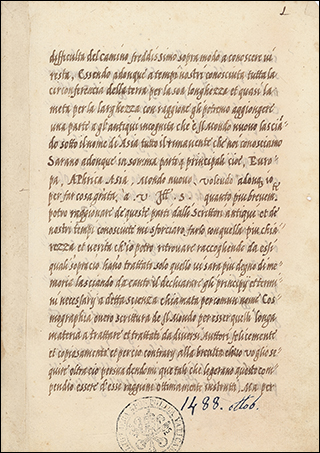 1
difficulta del Camino freddissimo sopra modo a conoscere ui
resta. Essendo adonque a tempi nostri conosciuta tutta la
circonferencia della terra per la sua longhezza et quasi la
meta per la larghezza con raggione gli potremo aggiongere
una parte a gli antiqui incognita che è il Mondo nuovo lascia͂
do sotto il nome di Asia tutto il rimanente che noi conosciamo
Sarano adonque in somma parti 4 principali cioè, Euro-
pa, Aphrica Asia, Mondo nuovo, volendo adonq; io
per far cosa grata, a V. S. quanto piu brevem.
potro raggionare de queste parti dalli Scrittori antiqui et de
nostri tempi conosciute mi sforzaro, farlo con quella piu chia-
rezza et verita ch'io potro ritrouare raccogliendo da essi
quali sopra ciò hano trattato solo quello ui sara piu degno di me-
moria lasciando da canto il dechiarar gli principij et termi
ni necessary a detta scienza chiamata per comun nome Cos-
mographia ouero scrittura de il Mondo per esser quelli longa
materia a trattare et trattati da diuersi Auttori felicemente
et copiosamente et per cio contrary alla breuità ch'io voglio se-
quire oltra cio persuadendomi que tali che legerano questo com-
pendio essere d'esse raggioni ottimamente instrutti. Ma per
1488.